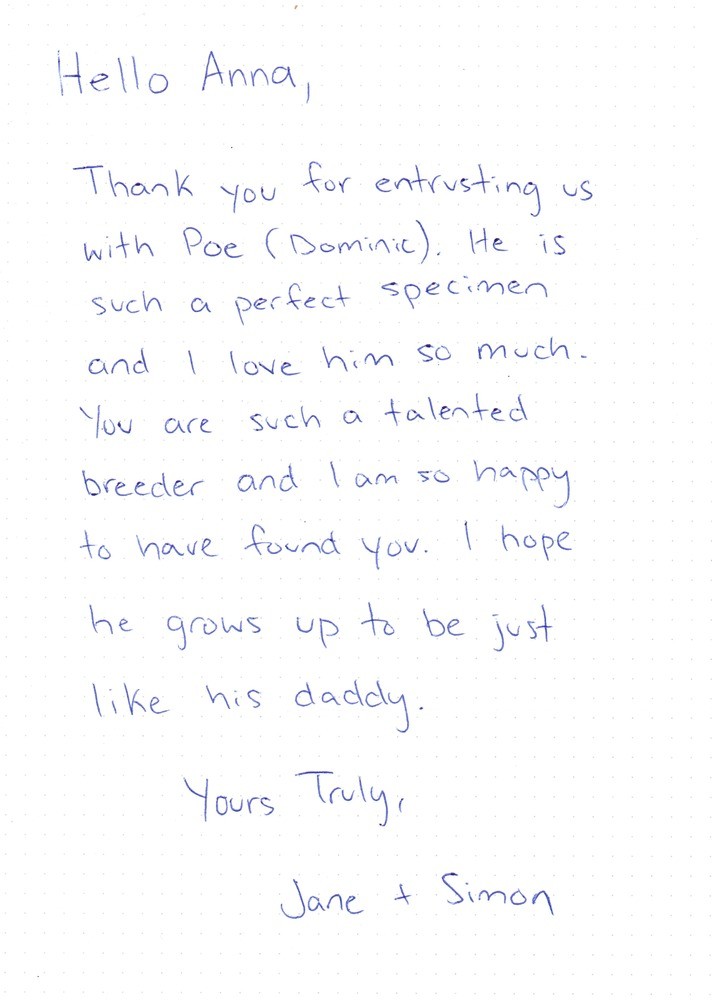 Hello Anna,
Thank you for entrusting us
with Poe (Dominic). He is
such a perfect specimen
and I love him so much.
You are such a talented
breeder and I am so happy
to have found you. I hope
he grows up to be just
like his daddy.
Yours Truly,
Jane + Simon